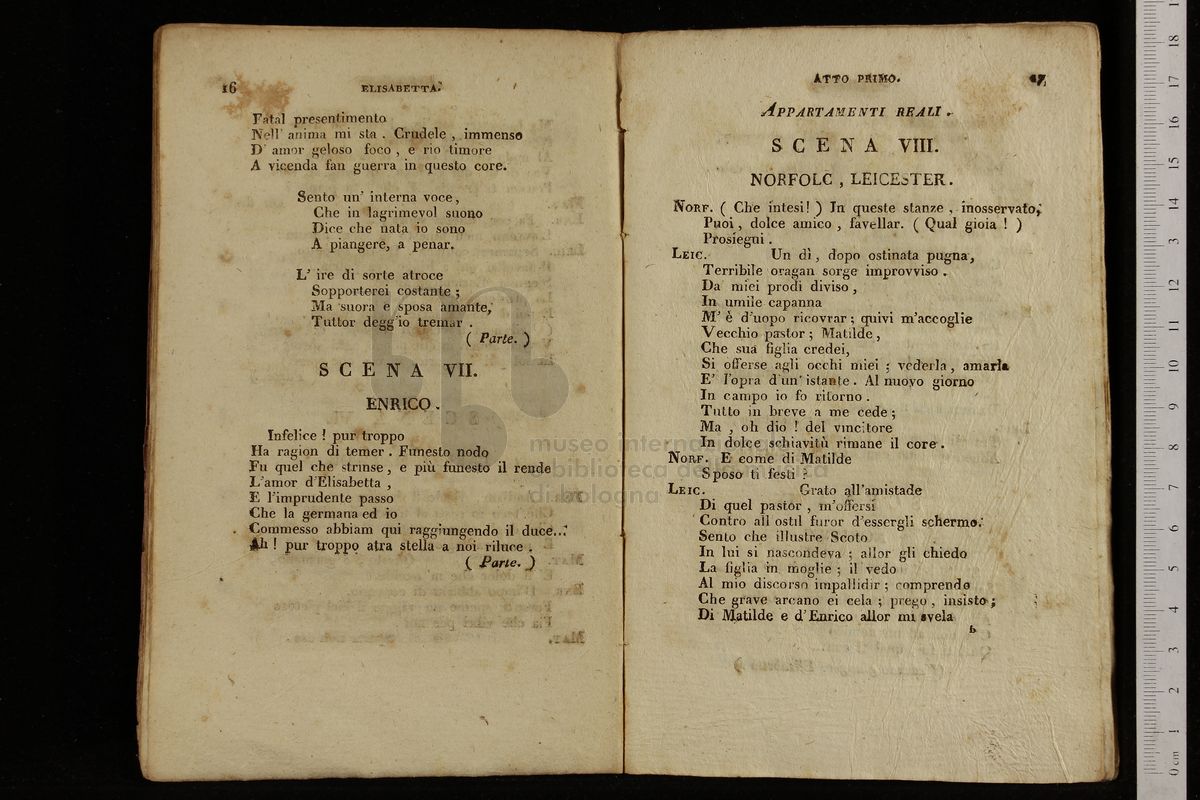 16
ELISABETTA.
Fatal presentimento
Nell' anima mi sta . Crudele , immenso
D' amor geloso foco , e rio timore
A vicenda fan guerra in questo core.
Sento un' interna voce,
Che in lagrimevol suono
Dice che nata io sono
A piangere, a penar.
L' ire di sorte atroce
Sopporterei costante ;
Ma suora e sposa amante,
Tuttor degg'io tremar .
( Parte. )
SCENA VII.
ENRICO .
Infelice ! pur troppo
Ha ragion di temer . Funesto nodo
Fu quel che strinse, e più funesto il rende
L'amor d'Elisabetta ,
E l'imprudente passo
Che la germana ed io
Commesso abbiam qui raggiungendo il duce...
Ah ! pur troppo atra stella a noi riluce .
( Parte. )
ATTO PRIMO.
17
APPARTAMENTI REALI .
SCENA VIII.
NORFOLC , LEICESTER .
NORF. ( Che intesi! ) In queste stanze , inosservato,
Puoi, dolce amico , favellar. ( Qual gioia ! )
Prosiegui .
LEIC. Un dì, dopo ostinata pugna,
Terribile oragan sorge improvviso .
Da miei prodi diviso ,
In umile capanna
M' è d'uopo ricovrar ; quivi m'accoglie
Vecchio pastor ; Matilde ,
Che sua figlia credei,
Si offerse agli occhi miei ; vederla, amarla
E' l'opra d'un' istante . Al nuovo giorno
In campo io fo ritorno .
Tutto in breve a me cede ;
Ma , oh dio ! del vincitore
In dolce schiavitù rimane il core .
NORF. E come di Matilde
Sposo ti festi ?
LEIC. Grato all'amistade
Di quel pastor , m'offersi
Contro all ostil furor d'essergli schermo.
Sento che illustre Scoto
In lui si nascondeva ; allor gli chiedo
La figlia in moglie ; il vedo
Al mio discorso impallidir ; comprendo
Che grave arcano ei cela ; prego , insisto ;
Di Matilde e d'Enrico allor mi svela
b
museo internazionale
e biblioteca della musica
di bologna
0 cm 1 2 3 4 5 6 7 8 9 10 11 12 13 14 15 16 17 18